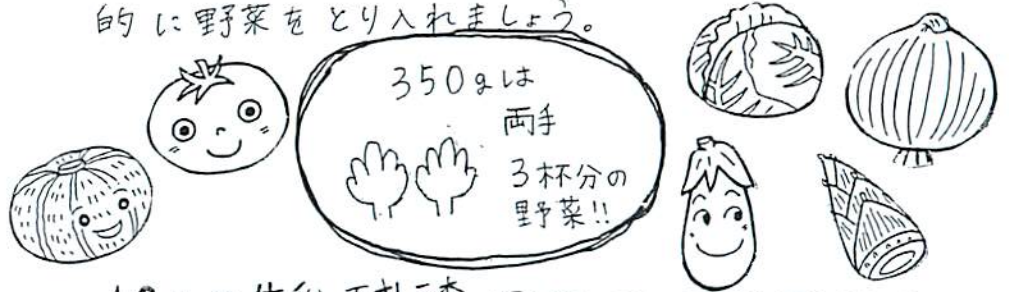 的に野菜をとり入れましょう。
350gは
両手
3杯分の
野菜!!